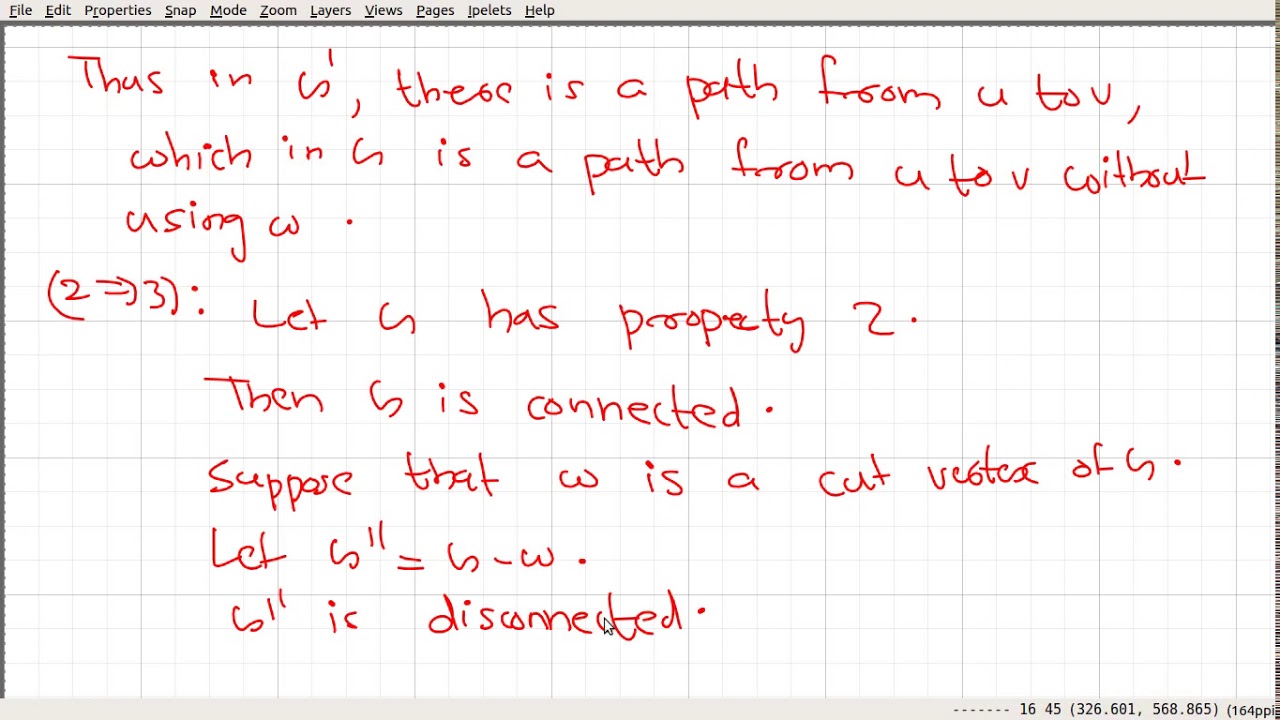 File Edit Properties Snap Mode Zoom Layers Views Pages Ipelets Help
Thus in G', there is a path from u to v,
which in G is a path from u to v without
using w.
(2⇒3): Let G has property 2.
Then G is connected.
Suppose that w is a cut vertex of G.
Let G'' = G-w.
G'' is disconnected.
------- 16 45 (326.601, 568.865) (164ppi